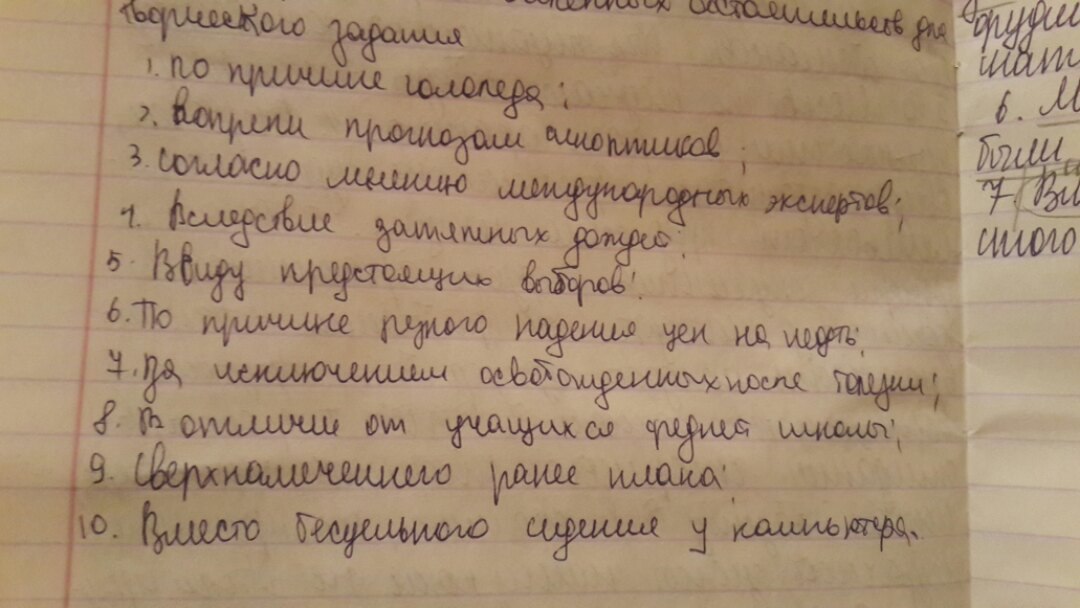 обстоятельств для
творческого задания
1. по причине гололеда;
2. Вопреки прогнозам синоптиков;
3. согласно мнению международных экспертов;
4. Вследствие затяжных дождей;
5. Ввиду предстоящих выборов;
6. По причине резкого падения цен на нефть;
7. За исключением освобожденных после болезни;
8. В отличие от учащихся средней школы;
9. Сверхнамеченного ранее плана;
10. Вместо бесцельного сидения у компьютера.
6. М
были
7. Вм